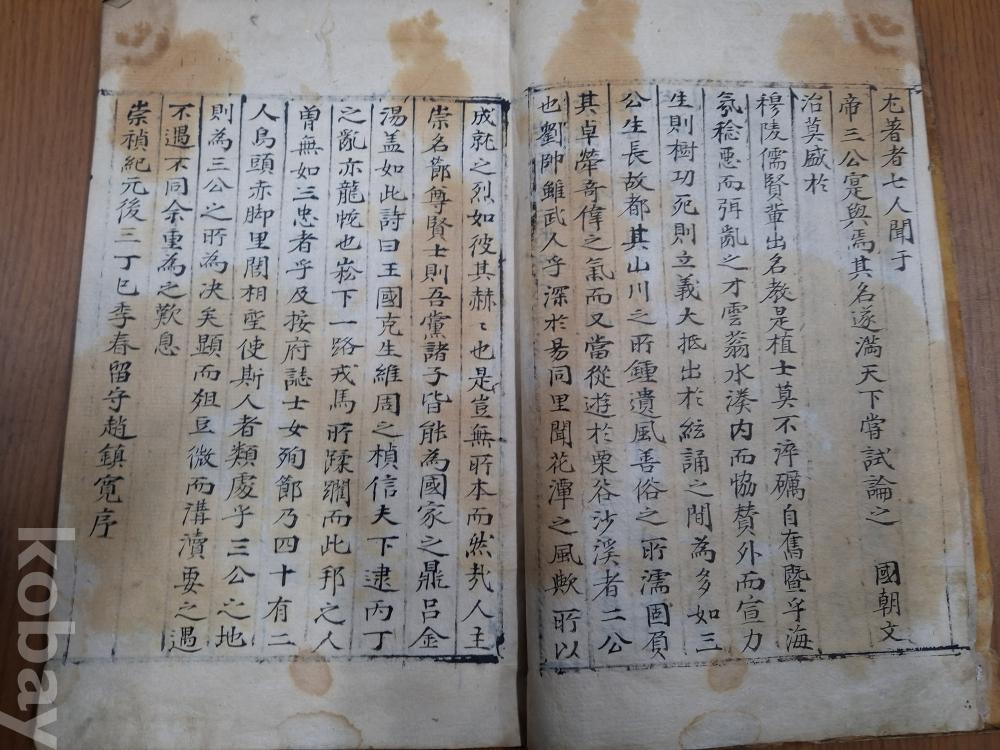 尤著者七人聞于
帝三公寔與焉其名遂滿天下嘗試論之 國朝文
治莫盛於
穆陵儒賢輩出名教是植士莫不淬礪自奮曁乎海
氛稔惡而弭亂之才雲蓊水湊内而恊賛外而宣力
生則樹功死則立義大抵出於絃誦之間為多如三
公生長故都其山川之所鍾遺風善俗之所濡固負
其卓犖奇偉之氣而又當從遊於栗谷沙溪者二公
也劉帥雖武人乎深於易同里聞花潭之風歟所以
成就之烈如彼其赫〻也是豈無所本而然㢤人主
崇名節尊賢士則吾黨諸子皆能為國家之鼎呂金
湯盖如此詩曰王國克生維周之楨信夫下逮丙丁
之亂亦龍蛇也崧下一路戎馬所蹂躙而此邦之人
曽無如三忠者乎及按府誌士女殉節乃四十有二
人烏頭赤脚里閭相望使斯人者類處乎三公之地
則為三公之所為决矣顯而俎豆微而溝瀆要之遇
不遇不同余重為之歎息
崇禎紀元後三丁巳季春留守趙鎮寛序
kobay